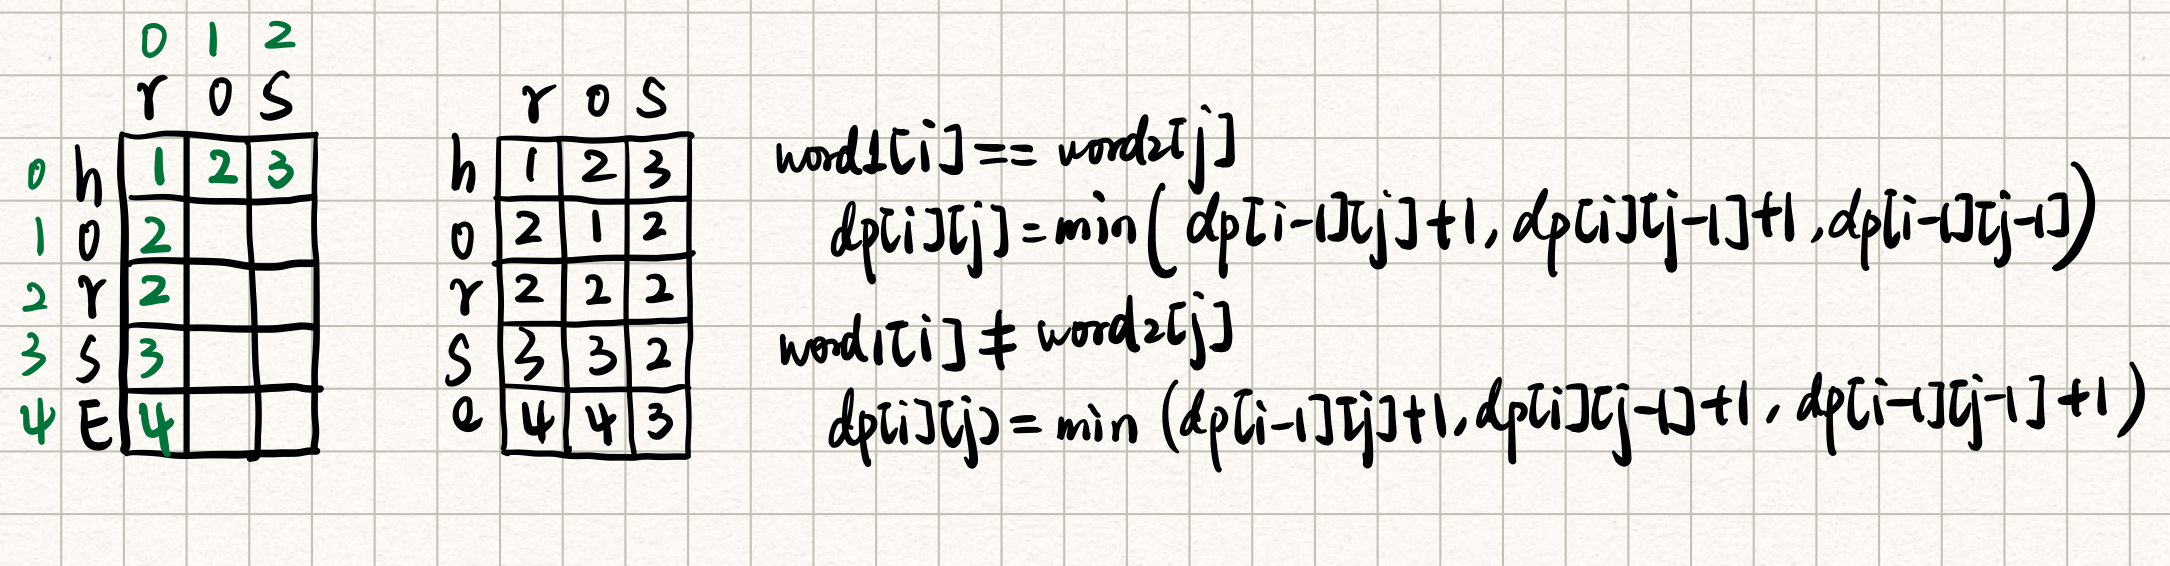 0 1 2
r o s
0 h 1 2 3
1 o 2
2 r 2
3 s 3
4 E 4
r o s
h 1 2 3
o 2 1 2
r 2 2 2
s 3 3 2
e 4 4 3
word1[i] == word2[j]
dp[i][j] = min( dp[i-1][j]+1, dp[i][j-1]+1, dp[i-1][j-1])
word1[i] ≠ word2[j]
dp[i][j] = min (dp[i-1][j]+1, dp[i][j-1]+1, dp[i-1][j-1]+1)